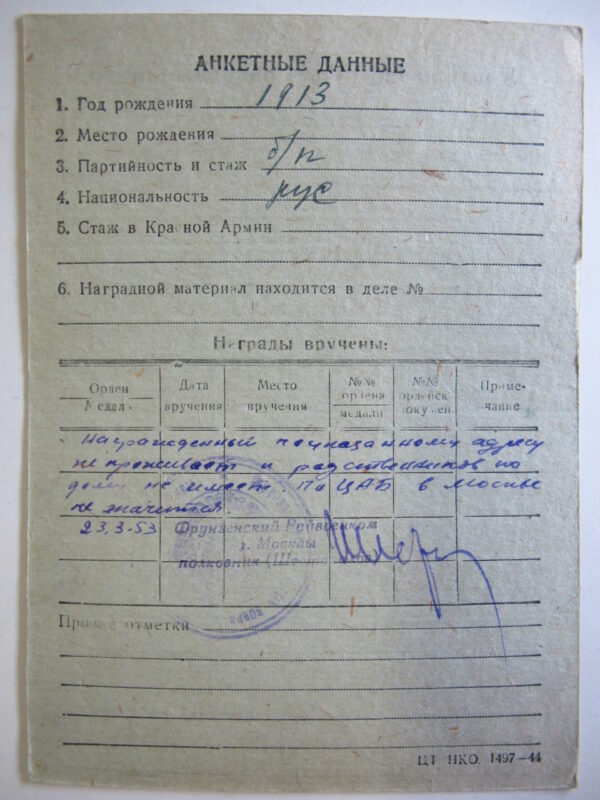 АНКЕТНЫЕ ДАННЫЕ
1. Год рождения 1913
2. Место рождения
3. Партийность и стаж б/п
4. Национальность рус
5. Стаж в Кра ной Армии
6. Наградной материал находится в деле №
Награды вручены:
Орден Медаль
Дата вручения
Место вручения
№№ ордена медали
№№ орденск. докумен.
Приме-чание
Награжденный по указанному адресу
не проживает и родственников по
дому не имеет. По ЦАБ в Москве
не значится.
23.3-53 Фрунзенский Райвоенком
г. Москвы
полковник
Прочие отметки
ЦТ НКО. 1497—44